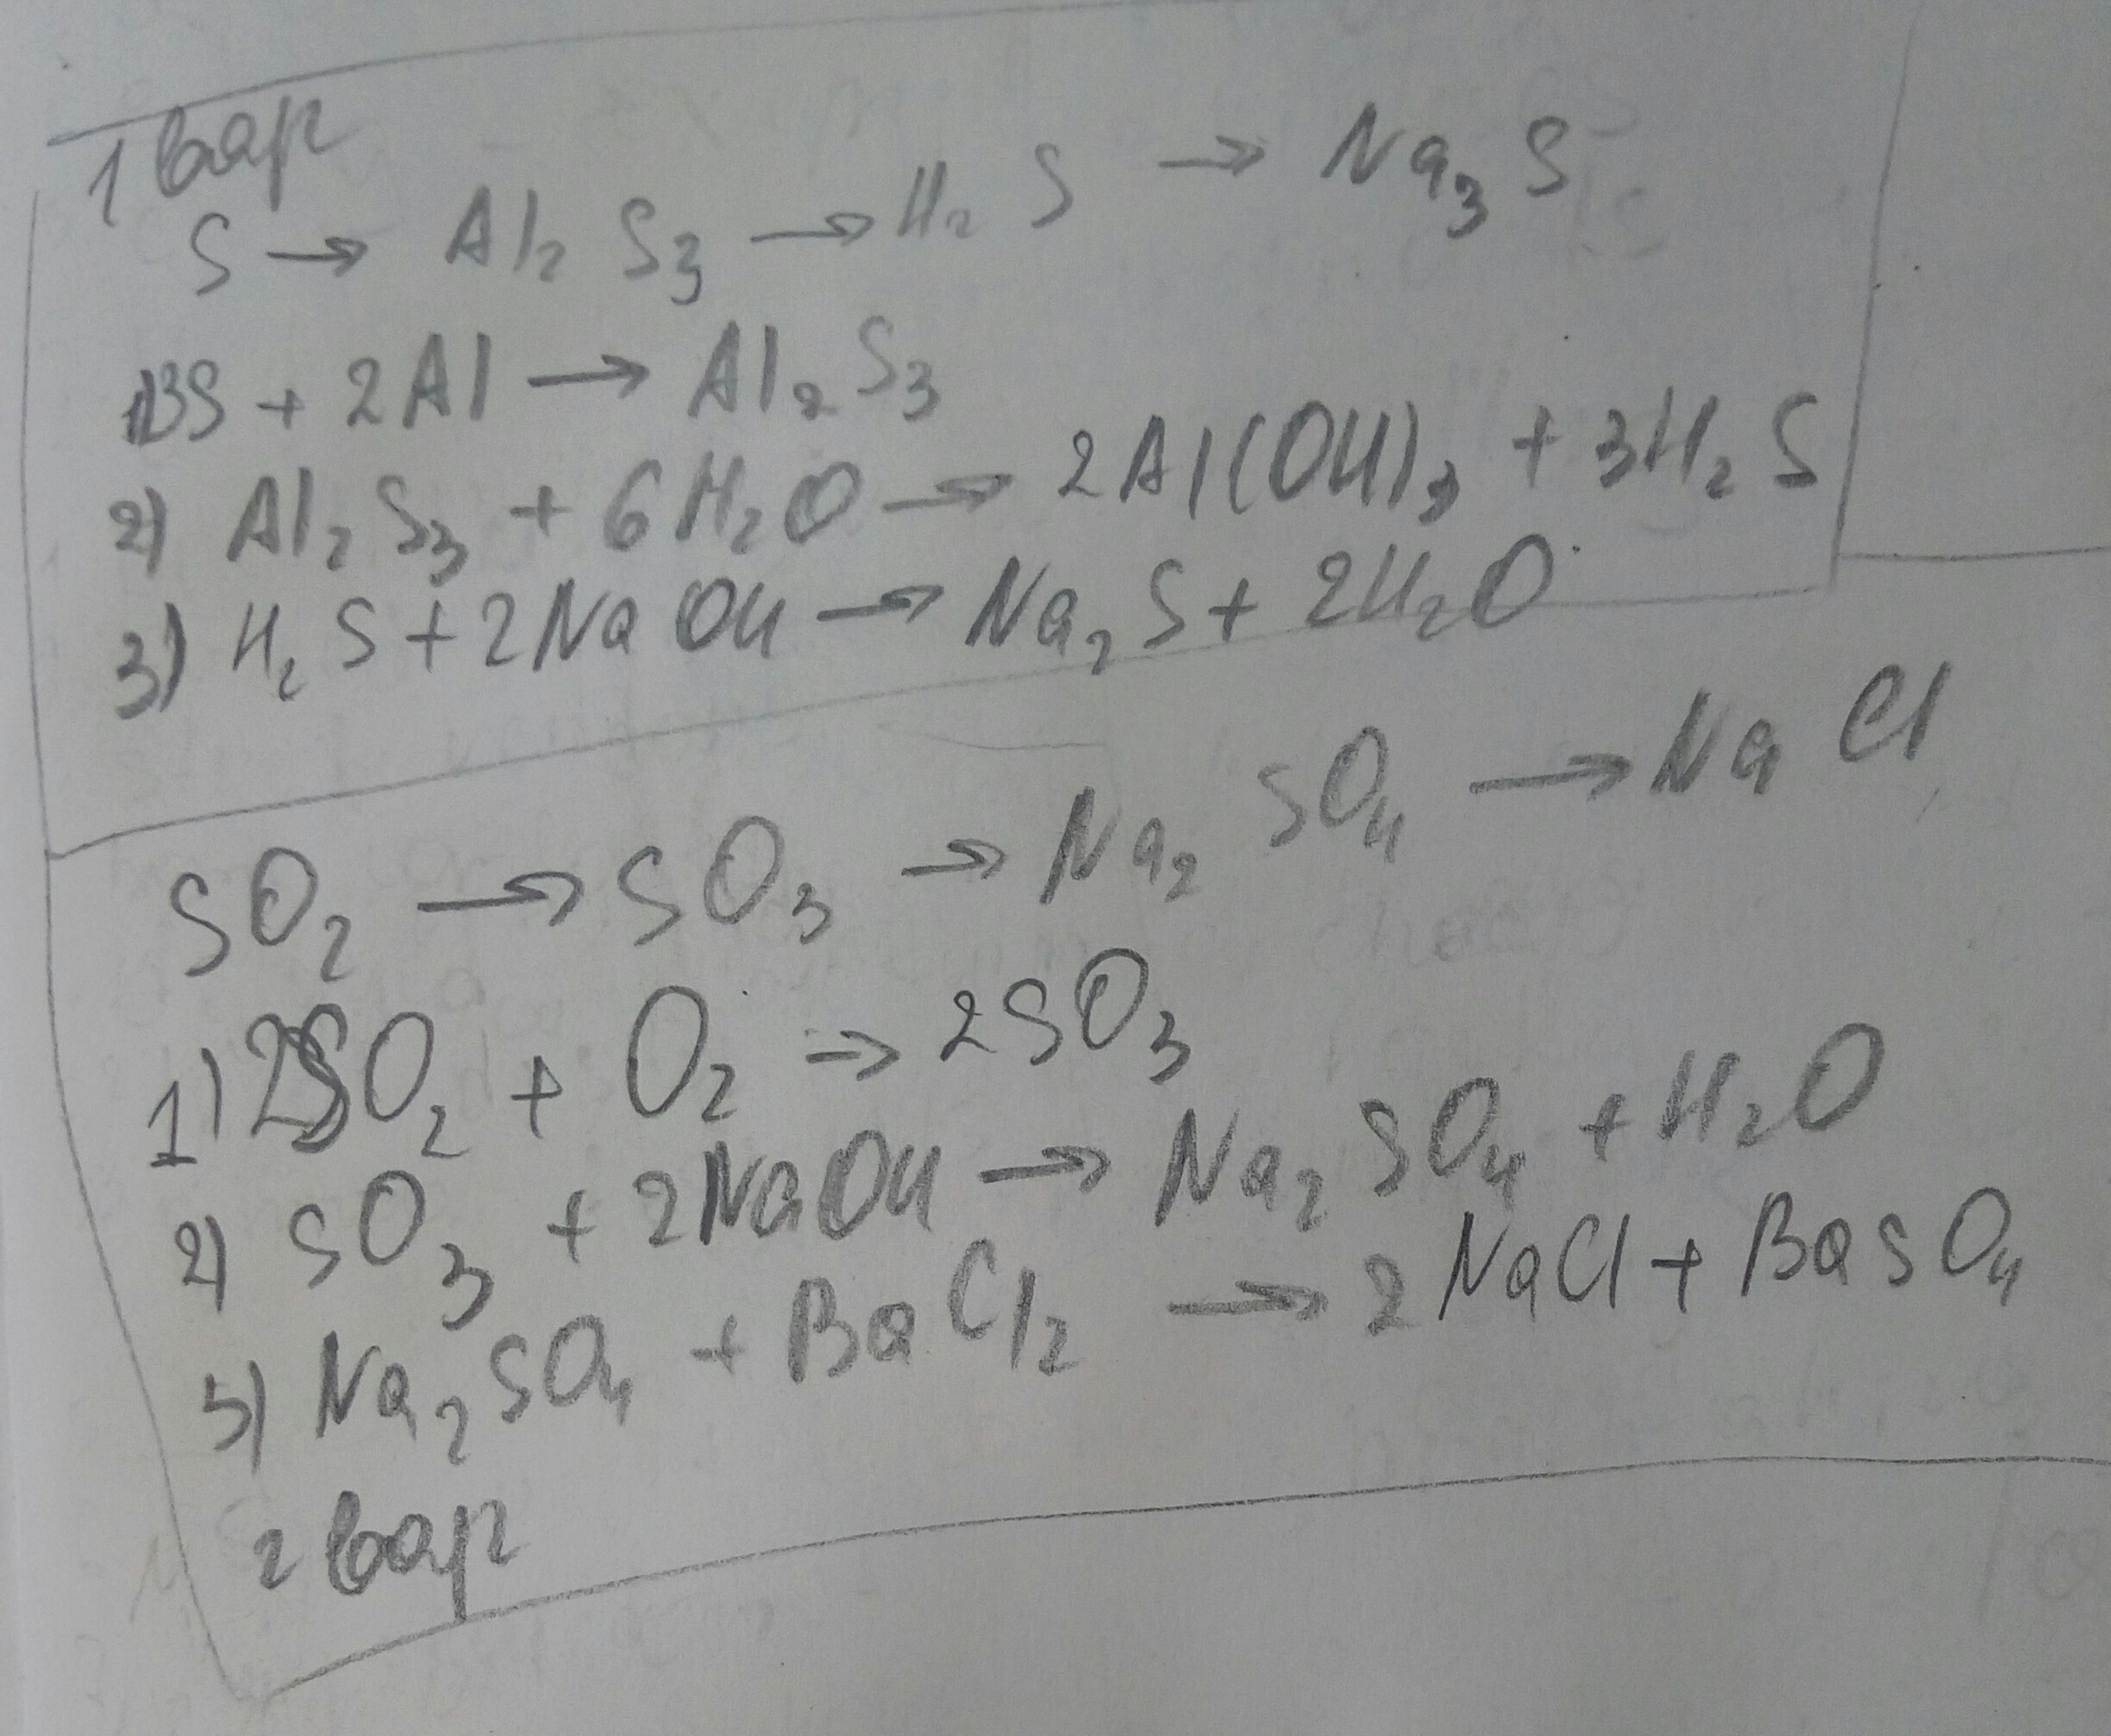 1 вар
S → Al₂S₃ → H₂S → Na₃S
1) 3S + 2Al → Al₂S₃
2) Al₂S₃ + 6H₂O → 2Al(OH)₃ + 3H₂S
3) H₂S + 2NaOH → Na₂S + 2H₂O
SO₂ → SO₃ → Na₂SO₄ → NaCl
1) 2SO₂ + O₂ → 2SO₃
2) SO₃ + 2NaOH → Na₂SO₄ + H₂O
3) Na₂SO₄ + BaCl₂ → 2NaCl + BaSO₄
2 вар